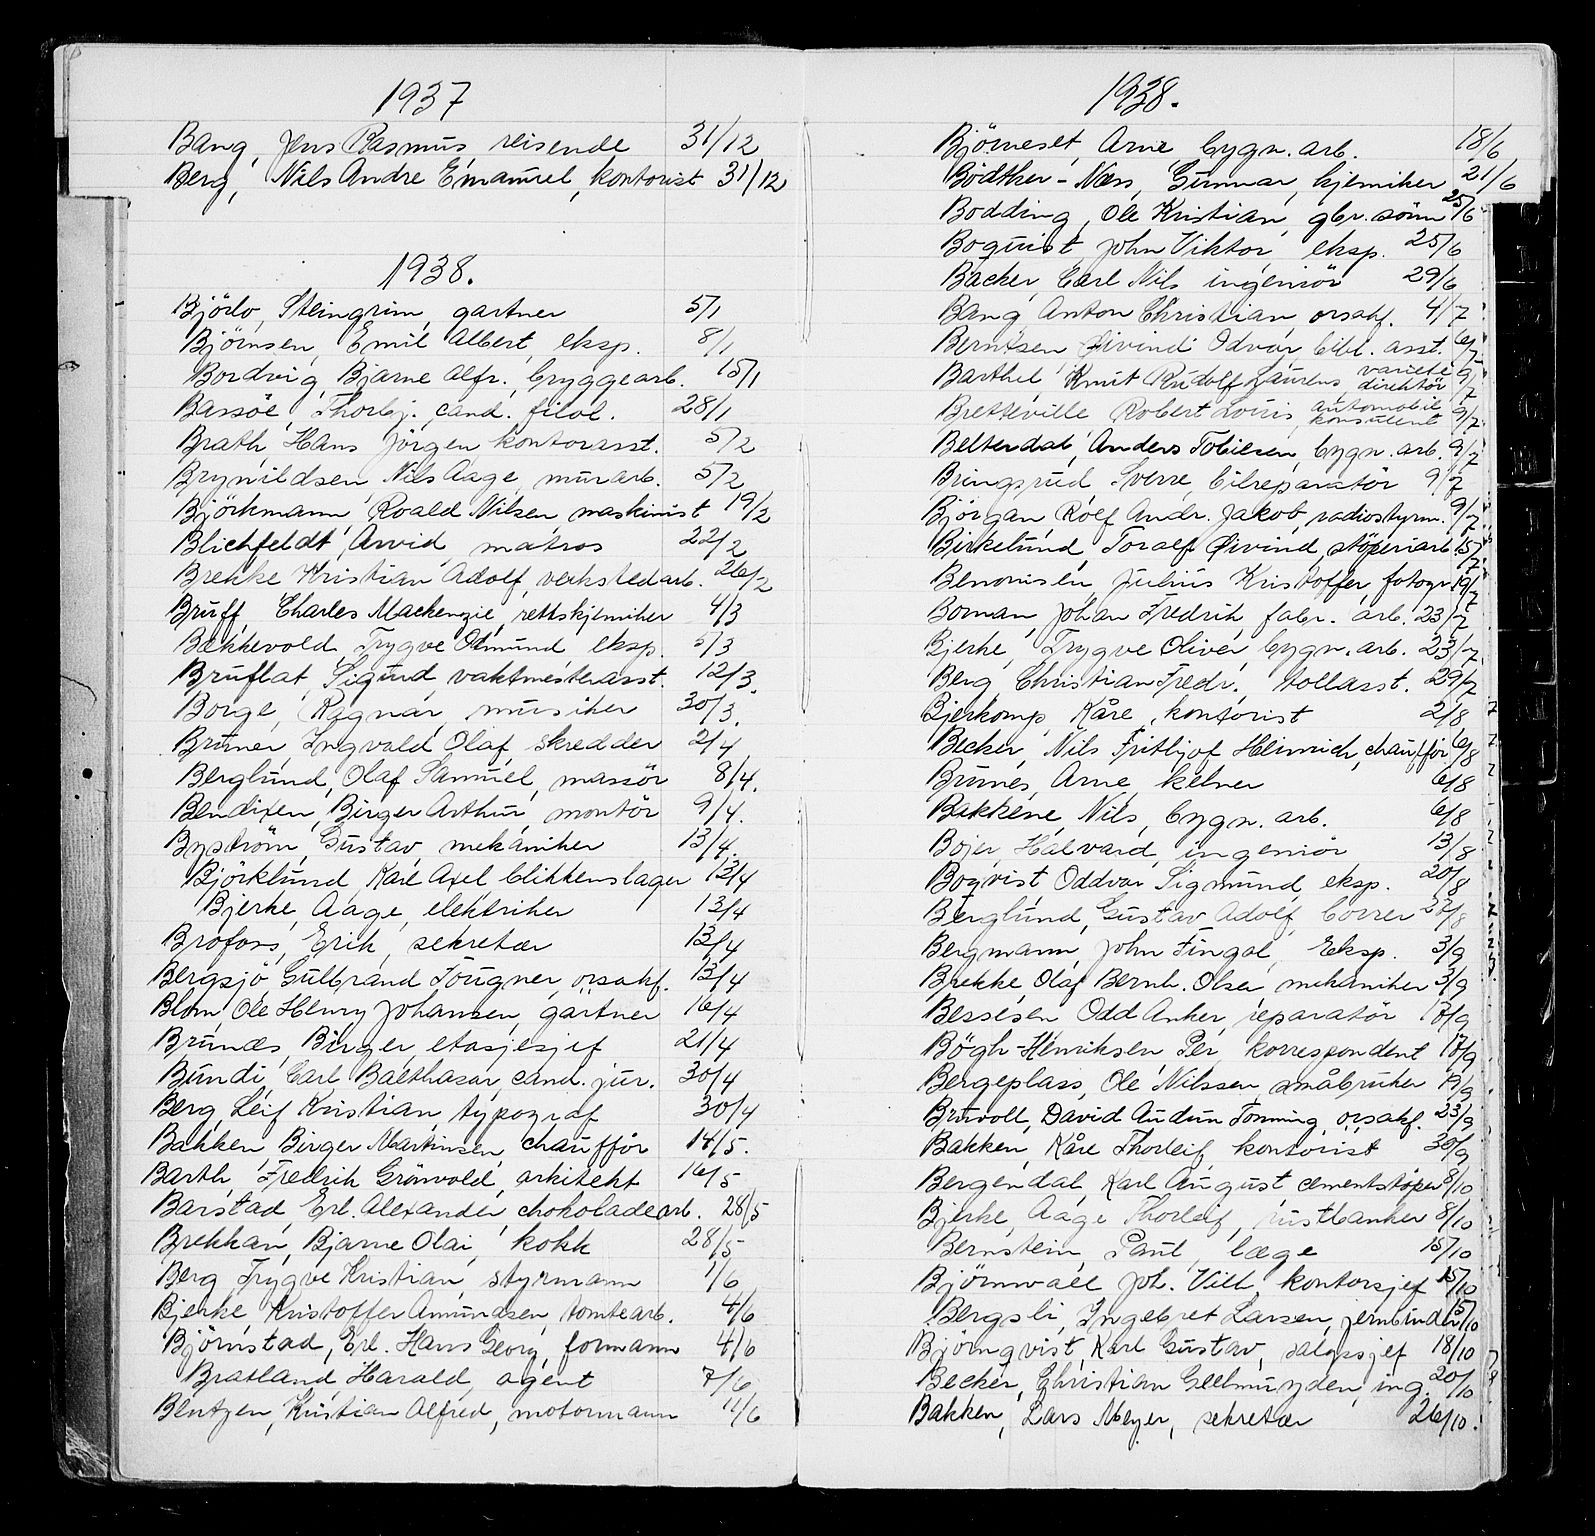 1937
Bang, Jens Rasmus, reisende 31/12
Berg, Nils Andre Emanuel, kontorist 31/12
1938.
Björlo, Steingrim, gartner 5/1
Björnsen, Emil Albert, eksp. 8/1
Bordvig, Bjarne Alfr., bryggearb. 15/1
Bassöe, Thorbj. cand. filol. 28/1
Brath, Hans Jörgen kontorasst. 5/2
Brynildsen, Nils Aage, murarb. 5/2
Björkmann, Roald Nilsen maskinist 19/2
Blichfeldt, Arvid, matros 22/2
Brekke Kristian Adolf, verkstedarb. 26/2
Bruff, Charles Mackenzie, rettskjemiker 4/3
Bekkevold, Trygve Osmund, eksp. 5/3
Bruflat, Sigurd vaktmesterasst. 12/3.
Borge, Ragnar, musiker 30/3.
Bruner, Ingvald Olaf, skredder 2/4
Berglund, Olaf Samuel, massör 8/4.
Bendixen, Birger Arthur, montör 9/4.
Byström, Gustav, mekaniker 13/4.
Björklund, Karl Axel blikkenslager 13/4
Bjerke, Aage, elektriker 13/4
Brofoss, Erik, sekretær 13/4
Bergsjö, Gulbrand Fougner, orsakf. 13/4
Blom, Ole Henry Johansen, gartner 16/4
Brunæs, Birger, etasjesjef 21/4
Bundi, Carl Balthasar, cand. jur. 30/4
Berg, Leif Kristian, typograf 30/4
Bakken, Birger Martinsen, chaufför 14/5.
Barth, Fredrik Grönvold, arkitekt 16/5
Barstad, Erl. Alexander, chokoladearb. 28/5
Brekkan, Bjarne Olai, kokk 28/5
Berg Trygve Kristian, styrmann 1/6
Bjerke, Kristoffer Amundsen, tomtearb. 4/6
Björnstad, Erl. Hans Georg, formann 4/6
Bratland, Harald, agent 7/6
Bentzen, Kristian Alfred, motormann 11/6
1938.
Björneset, Arne, bygn. arb. 18/6
Bödtker-Næss, Gunnar, kjemiker 21/6
Bodding, Ole Kristian, gbr. sönn 25/6
Boquist, John Viktor, eksp. 25/6
Backer, Carl Nils ingeniör 29/6
Bang Anton Christian, orsakf. 4/7
Berntsen Öivind Odvar bibl. asst. 6/7
Barthel, Knut Rudolf Laurens varieté direktör 9/7
Bretteville Robert Louis, automobil konsulent 9/7
Belterdal, Anders Tobiesen, bygn. arb. 9/7
Bringsrud, Sverre, bilreparatör 9/7
Björgan Rolf Andr. Jakob, radiostyrm. 9/7
Birkelund, Toralf Öivind, stöperiarb. 15/7
Benonisen, Julius Kristoffer, fotogr. 19/7
Boman, Johan Fredrik fabr. arb. 23/7
Bjerke, Trygve Oliver, bygn. arb. 23/7.
Berg, Christian Fredr., tollasst. 29/7
Bjerkomp, Kåre, kontorist 2/8
Becker, Nils Frithjof Heinrich, chaufför 6/8
Brunes, Arne, kelner 6/8
Bakkene, Nils, bygn. arb. 6/8
Bojer, Halvard, ingeniör 13/8
Boqvist, Oddvar Sigmund, eksp. 20/8
Berglund, Gustav Adolf, borrer 27/8
Bergmann, John Fingal, Eksp. 3/9
Brekke, Olaf Bernh. Olsen mekaniker 3/9
Bessesen Odd Anker, reparatör 17/9
Bögh-Henriksen Per, korrespondent 17/9
Bergeplass, Ole Nilssen småbruker 19/9
Bruvoll, David Audun Tonning, orsakf. 23/9
Bakken, Kåre Thorleif, kontorist 30/9
Bergendal, Karl August, cementstöper 8/10
Bjerke, Aage Thorleif, rustbanker 8/10
Bernstein, Paul, læge 15/10
Björnwall Joh. Vilh, kontorsjef 15/10
Bergsli, Ingebret Larsen, jernbinder 15/10
Björnqvist, Karl Gustav, salgssjef 18/10
Becker, Christian Geelmuyden, ing. 20/10
Bakken, Lars Meyer, sekretær 26/10.